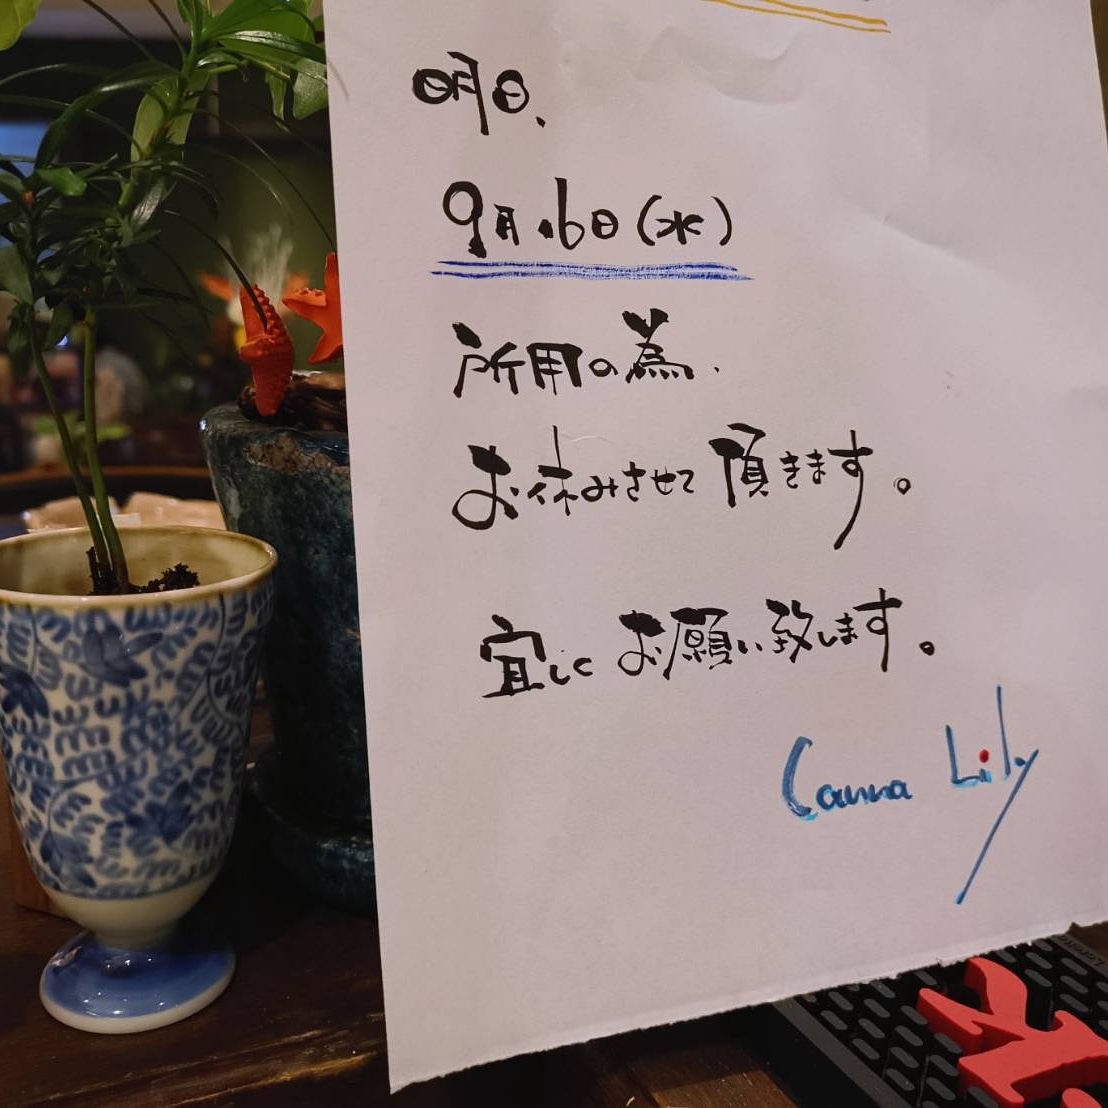 明日、
9月.6日(水)
所用の為.
お休みさせて頂きます。
宜しくお願い致します。
Canna Lily